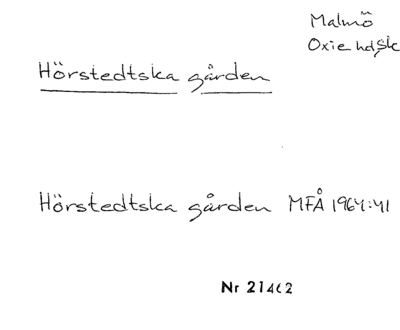 Malmö
Oxie hd, Sk
Hörstedtska gården
Hörstedtska gården MFÅ 1964:41
Nr 21462